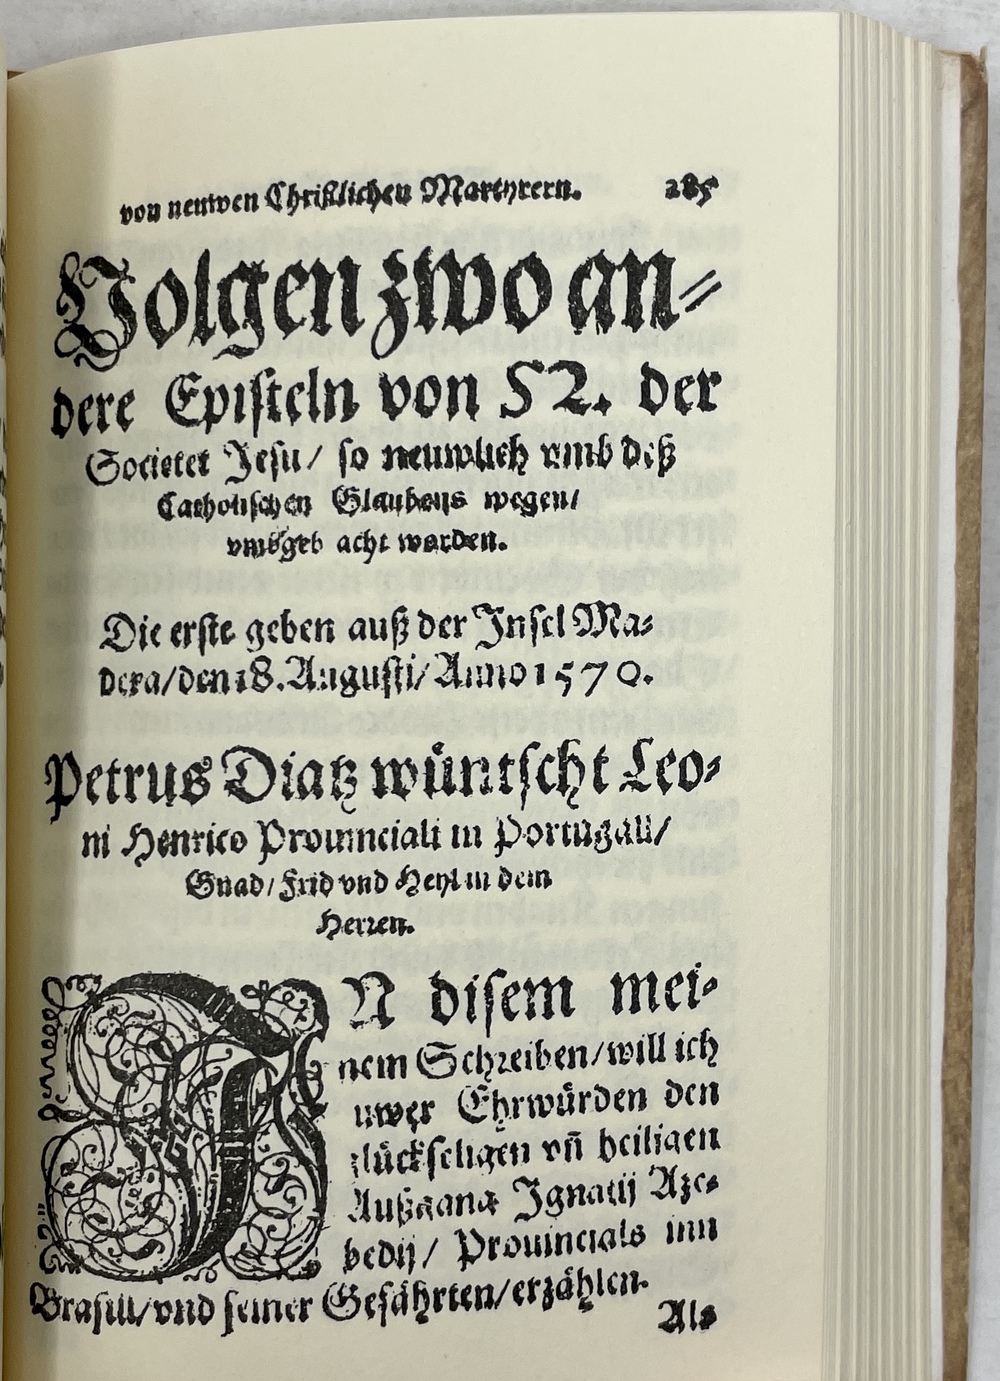 von neuwen Christlichen Martyrern. 285
Volgen zwo an-
dere Epistteln von 52. der
Societet Jesu/ so neuwlich vmb deß
Catholischen Glaubens wegen/
vmbgeb acht worden.
Die erste geben auß der Insel Ma-
dera/den 18. Augusti/Anno 1570.
Petrus Diatz wüntscht Leo-
ni Henrico Prouinciali in Portugall/
Gnad/Frid vnd Heyl in dem
Herren.
IN disem mei-
nem Schreiben/will ich
uwer Ehrwürden den
glückseligen vñ heiligen
Außgang Ignatij Aze-
bedij/ Prouincials inn
Brasill/vnd seiner Gefährten/erzählen.
Als